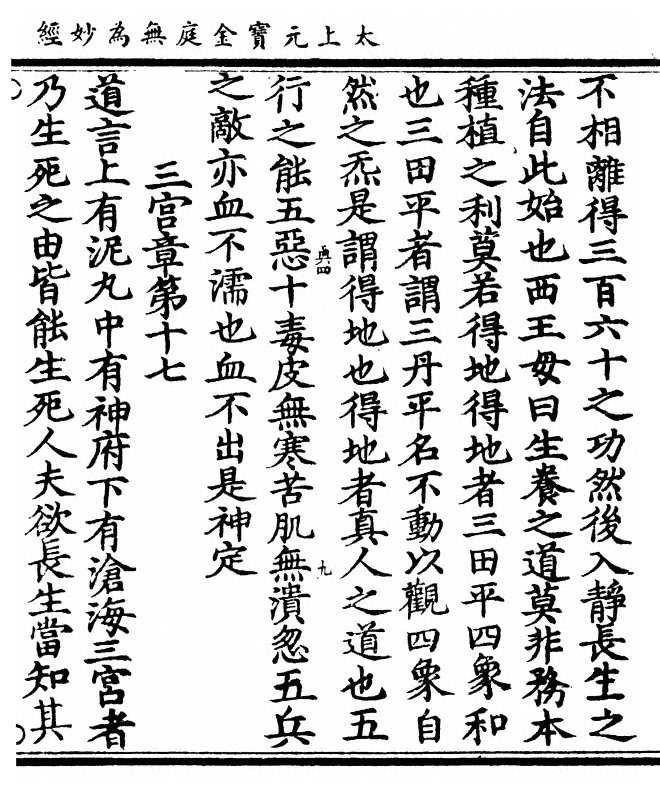 太上元寶金庭無為妙經
不相離得三百六十之功然後入靜長生之
法自此始也西王毋曰生養之道莫非務本
種植之利莫若得地得地者三田平四象和
也三田平者謂三丹平名不動以觀四象自
然之炁是謂得地也得地者真人之道也五
行之能五惡十毒皮無寒苦肌無潰忽五兵
與四
九
之敵亦血不濡也血不出是神定
三宮章第十七
道言上有泥丸中有神府下有滄海三宮者
乃生死之由皆能生死人夫欲長生當知其